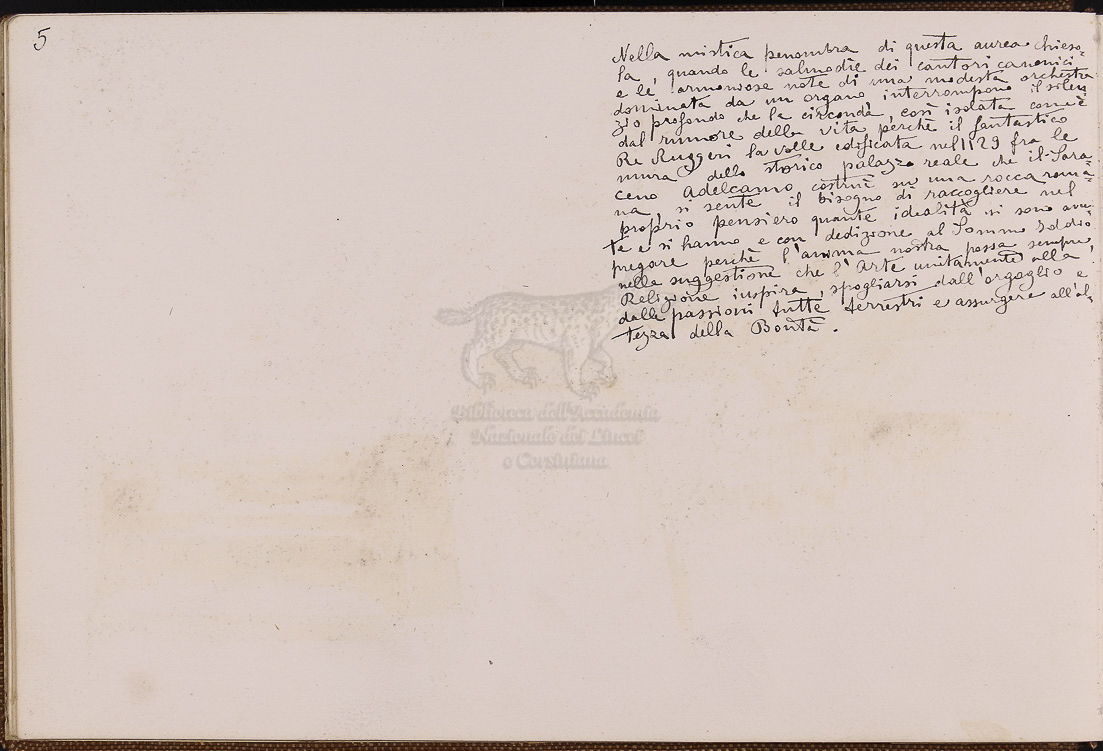 5
Nella mistica penombra di questa aurea chieso-
la, quando le salmodie dei cantori canonici
e le armoniose note di una modesta orchestra
dominata da un organo, interrompono il silen-
zio profondo che la circonda, così isolata com'è
dal rumore della vita perchè il fantastico
Re Ruggeri la volle edificata nel 1129 fra le
mura dello storico palazzo reale che il Sara-
ceno Adelcamo costruì su una rocca roma-
na, si sente il bisogno di raccogliere nel
proprio pensiero quante idealità si sono avu-
te e si hanno e con dedizione al Sommo Iddio
pregare perchè l'anima nostra possa sempre,
nella suggestione che l'Arte unitamente alla
Religione inspira, spogliarsi dall'orgoglio e
dalle passioni tutte terrestri e assurgere all'al-
tezza della Bontà.
Biblioteca dell'Accademia
Nazionale dei Lincei
e Corsiniana